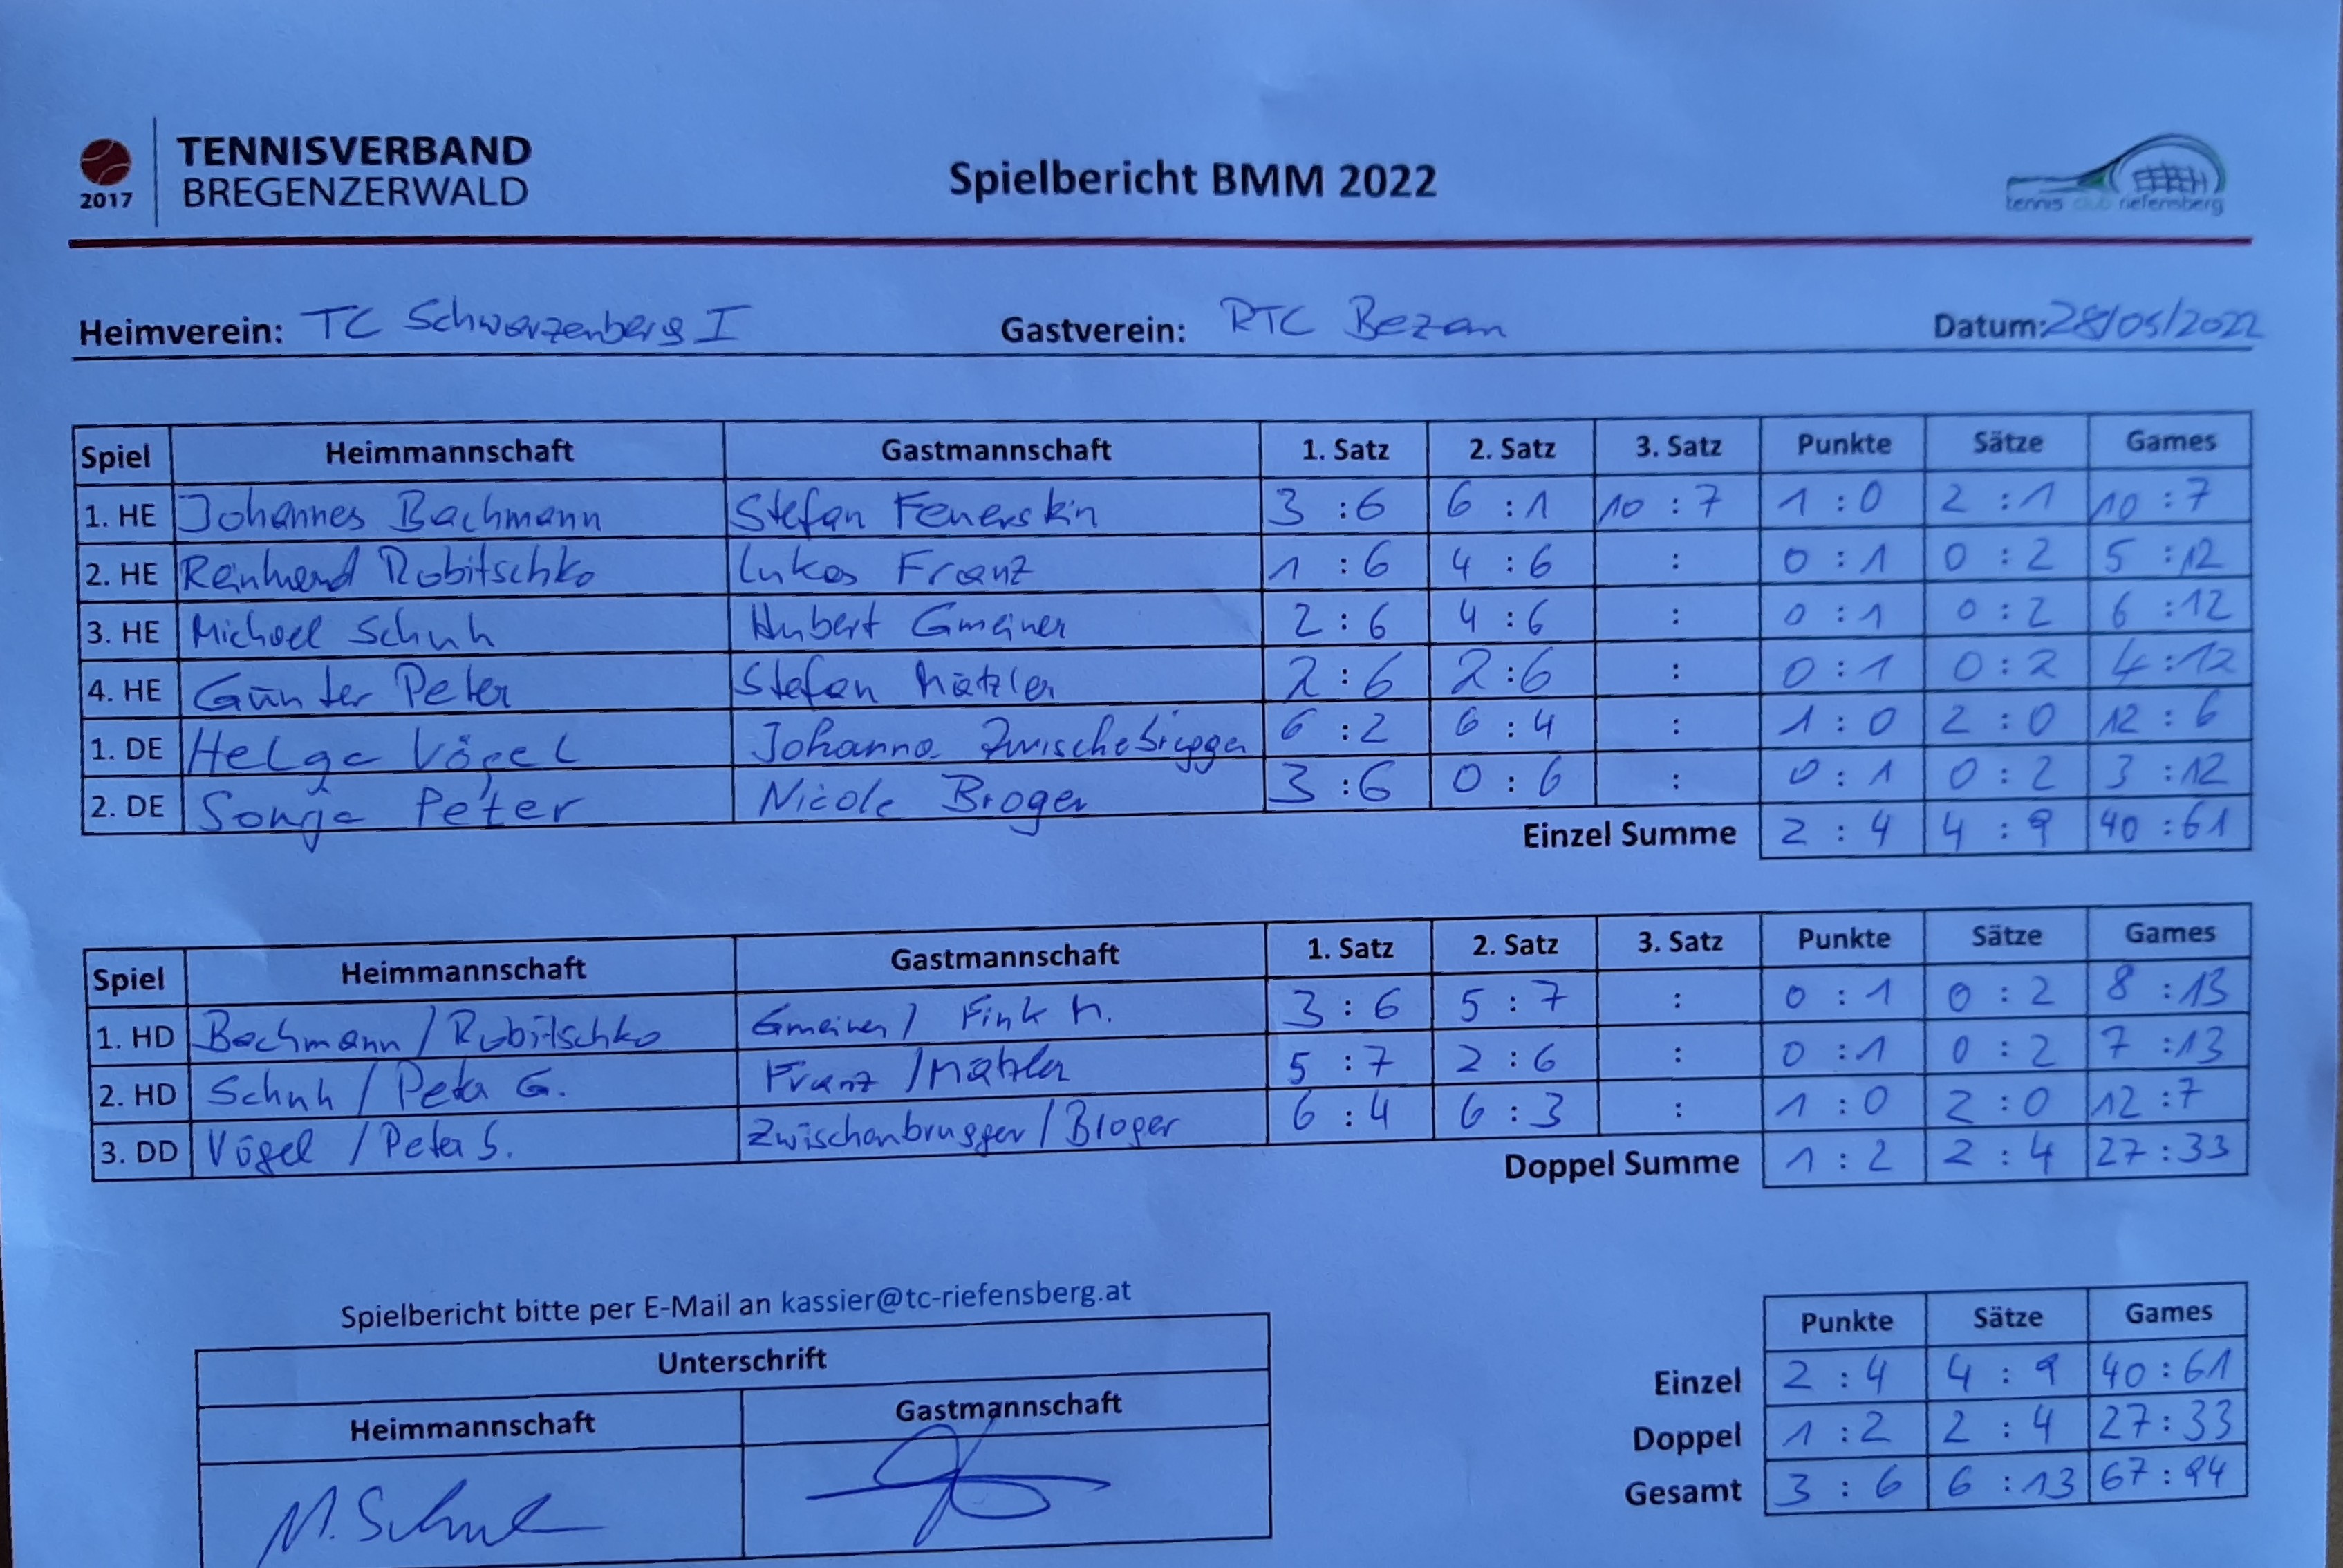 TENNISVERBAND
BREGENZERWALD
2017
Spielbericht BMM 2022
tennis club riefensberg
Heimverein: TC Schwarzenberg I Gastverein: RTC Bezau Datum: 28/05/2022
Spiel Heimmannschaft Gastmannschaft 1. Satz 2. Satz 3. Satz Punkte Sätze Games
1. HE Johannes Bachmann Stefan Feuerskin 3 : 6 6 : 1 10 : 7 1 : 0 2 : 1 10 : 7
2. HE Reinhard Robitschko Lukas Franz 1 : 6 4 : 6 : 0 : 1 0 : 2 5 : 12
3. HE Michael Schuh Hubert Gmeiner 2 : 6 4 : 6 : 0 : 1 0 : 2 6 : 12
4. HE Günter Peter Stefan Mätzler 2 : 6 2 : 6 : 0 : 1 0 : 2 4 : 12
1. DE Helga Vögel Johanna Zwischebrugger 6 : 2 6 : 4 : 1 : 0 2 : 0 12 : 6
2. DE Sonja Peter Nicole Broger 3 : 6 0 : 6 : 0 : 1 0 : 2 3 : 12
Einzel Summe 2 : 4 4 : 9 40 : 61
Spiel Heimmannschaft Gastmannschaft 1. Satz 2. Satz 3. Satz Punkte Sätze Games
1. HD Bachmann / Robitschko Gmeiner / Fink M. 3 : 6 5 : 7 : 0 : 1 0 : 2 8 : 13
2. HD Schuh / Peter G. Franz / Mätzler 5 : 7 2 : 6 : 0 : 1 0 : 2 7 : 13
3. DD Vögel / Peter S. Zwischenbrugger / Broger 6 : 4 6 : 3 : 1 : 0 2 : 0 12 : 7
Doppel Summe 1 : 2 2 : 4 27 : 33
Spielbericht bitte per E-Mail an kassier@tc-riefensberg.at
Unterschrift
Heimmannschaft Gastmannschaft
M. Schuh
Punkte Sätze Games
Einzel 2 : 4 4 : 9 40 : 61
Doppel 1 : 2 2 : 4 27 : 33
Gesamt 3 : 6 6 : 13 67 : 94